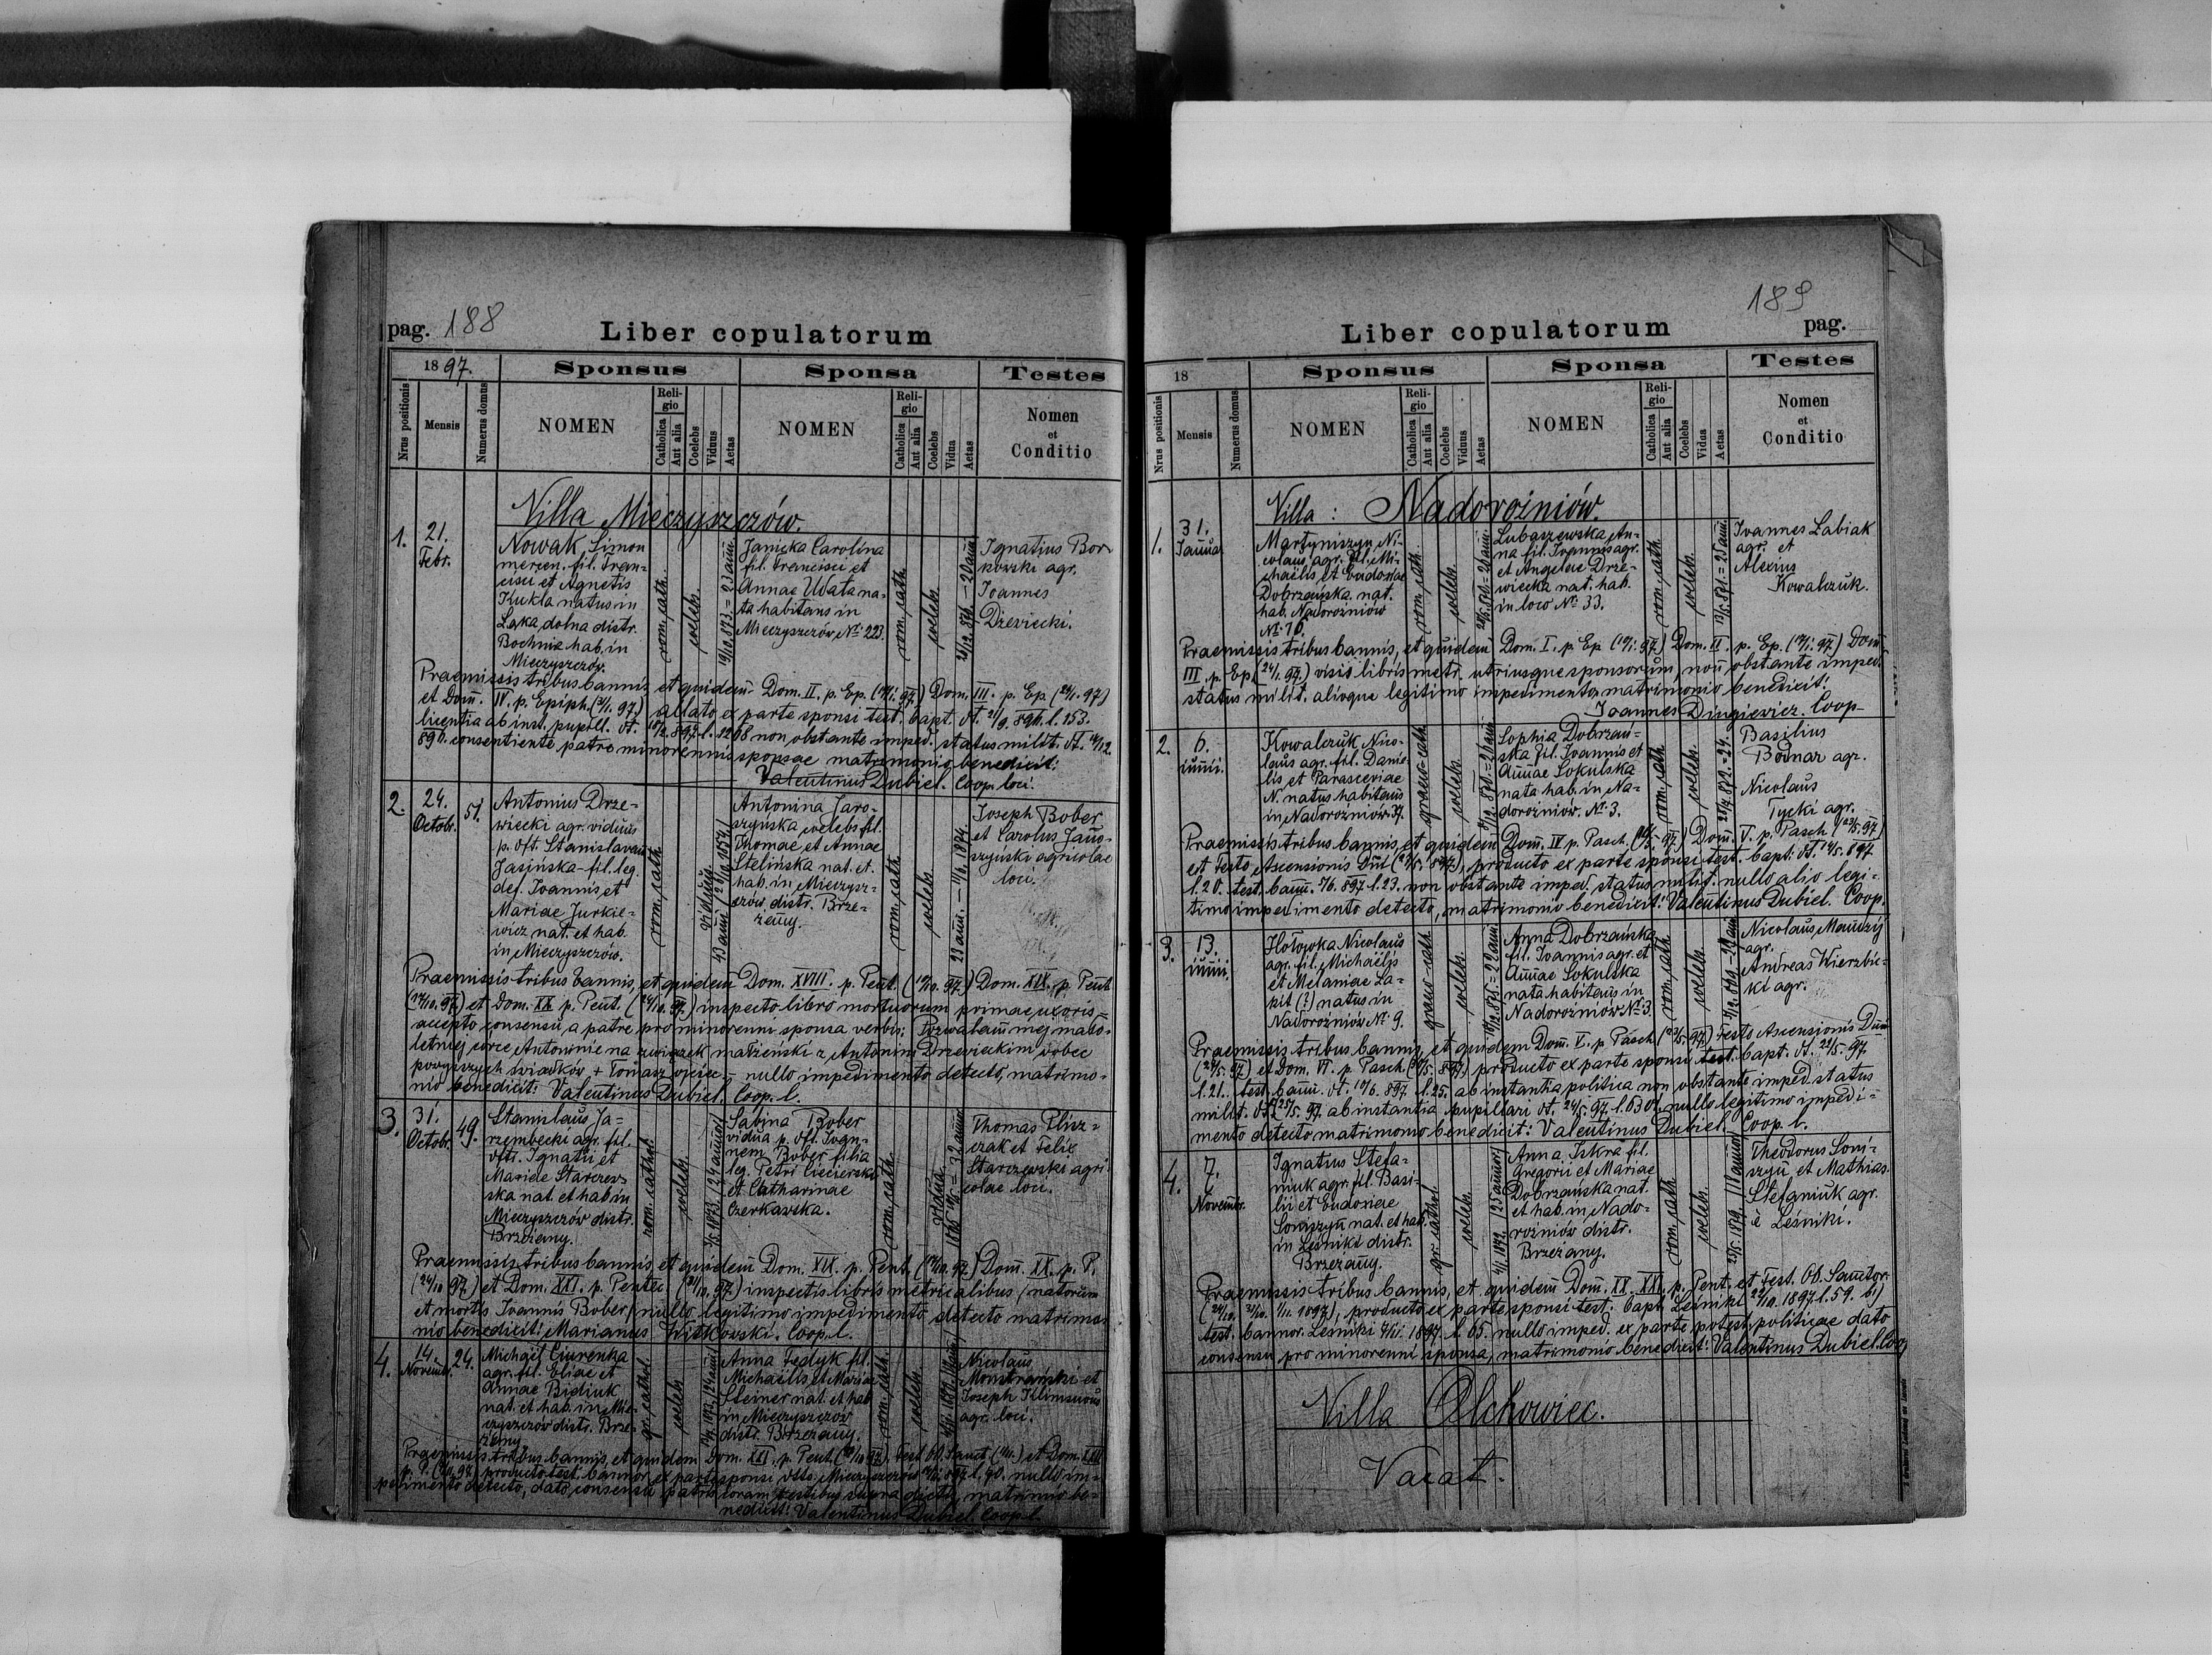 pag. 188
Liber copulatorum
1897.
Sponsus
Sponsa
Testes
Nrus positionis
Mensis
Numerus domus
NOMEN
Religio
Catholica
Aut alia
Coelebs
Viduus
Aetas
NOMEN
Religio
Catholica
Aut alia
Coelebs
Vidua
Aetas
Nomen
et
Conditio
Villa Mieczyszczów.
1.
21.
Febr.
Nowak Simon
mercen. fil. Fran-
cisci et Agnetis
Kukla natus in
Łąka dolna distr.
Bochnia hab. in
Mieczyszczów.
rom. cath.
coelebs.
Janicka Carolina
fil. Francisci et
Annae Wdata na-
ta habitans in
Mieczyszczów, No 223.
rom. cath.
coelebs.
Ignatius Bor-
kowski agr.
Joannes
Drzewiecki.
Praemissis tribus bannis, et quidem Dom. II. p. Ep. (17/1. 97.) Dom. III. p. Ep. (24/1. 97.)
et Dom. IV. p. Epiph. (31/1. 97.) allato ex parte sponsi test. bapt. dt. 2/9. 896. l. 153.
licentia ab inst. pupill. dt. 8268 non obstante imped. status milit. dt.
896. consentiente patre minorennis sponsae matrimonio benedicit:
Valentinus Dubiel. Coop. loci.
2.
24.
Octobr.
51.
Antonius Drze-
wiecki agr. viduus
p. dft. Stanislavam
Jasińska fil. leg.
def. Joannis et
Mariae Jurkie-
wicz nat. et hab.
in Mieczyszczów.
rom. cath.
viduus.
Antonina Jaro-
szyńska coelebs fil.
Thomae et Annae
Stelińska nat. et.
hab. in Mieczysz-
czów distr. Brze-
żany.
rom. cath.
coelebs.
Joseph Bober
et Carolus Jaro-
szyński agricolae
loci.
Praemissis tribus bannis, et quidem Dom. XVIII. p. Pent. (10/10. 97.) Dom. XIX. p. Pent.
(17/10. 97.) et Dom. XX. p. Pent. (24/10. 97.) inspecto libro mortuorum primae uxoris =
accepto consensu, a patre pro minorenni sponsa verbis: Pozwalam mej mało-
letniej córce Antoninie na związek małżeński z Antonim Drzewieckim wobec
powyższych świadków, + Tomasz ojciec = nullo impedimento detecto, matrimo-
nio benedicit: Valentinus Dubiel. Coop. l.
3.
31.
Octobr.
49.
Stanislaus Ja-
rzembecki agr. fil.
dfti. Ignatii et
Mariae Starczew-
ska nat. et hab. in
Mieczyszczów distr.
Brzeżany.
rom. cathol.
coelebs.
Sabina Bober
vidua p. dft. Joan-
nem Bober filia
leg. Petri Ciecierski
et Catharinae
Czerkawska.
rom. cath.
vidua.
Thomas Plisz-
czak et Felix
Starczewski agri-
colae loci.
Praemissis tribus bannis, et quidem Dom. XIX. p. Pent. (17/10. 97.) Dom. XX. p. P.
(24/10 97.) et Dom. XXI. p. Pentec. (31/10. 97.) inspectis libris metricalibus (natorum
et mortis Joannis Bober) nullo legitimo impedimento detecto matrimo-
nio benedicit: Marianus Witkowski. Coop. l.
4.
14.
Novemb.
24.
Michael Ciurenka
agr. fil. Eliae et
Annae Bidiuk
nat. et hab. in Mie-
czyszczów distr. Brze-
żany.
gr. cathol.
coelebs
Anna Fedyk fil.
Michaelis et Mariae
Steiner nat. et hab.
in Mieczyszczów
distr. Brzeżany.
rom. cath.
coelebs.
Nicolaus
Monstrański et
Joseph Klimsuous
agr. loci.
Praemissis tribus bannis, et quidem Dom. XXI. p. Pent. (31/10 97.) Fest. OO. Sanct. (1/11.) et Dom. XXII
p. P. (7/11. 97.) producto test. bannor. ex parte sponsi Mieczyszczów 897. l. 90. nullo im-
pedimento detecto, dato consensu patris coram testibus supra dictis, matrimonio be-
nedicit: Valentinus Dubiel. Coop. l.
189
Liber copulatorum
pag.
18
Sponsus
Sponsa
Testes
Nrus positionis
Mensis
Numerus domus
NOMEN
Religio
Catholica
Aut alia
Coelebs
Viduus
Aetas
NOMEN
Religio
Catholica
Aut alia
Coelebs
Vidua
Aetas
Nomen
et
Conditio
Villa : Nadorożniów.
1.
31.
Januar.
Martyniszyn Ni-
colaus, agr. fil. Mi-
chaelis et Eudoxiae
Dobrzańska. nat.
hab. Nadorożniów
No 10.
rom. cath.
coelebs.
Lubaszewska An-
na fil. Joannis agr.
et Angelae Drze-
wiecka nat. hab.
in loco No 33.
rom. cath.
coelebs.
Joannes Łabiak
agr. et
Alexius
Kowalczuk.
Praemissis tribus bannis, et quidem, Dom. I. p. Ep. (10/1. 97.) Dom. II. p. Ep. (17/1. 97.) Dom.
III. p. Ep. (24/1. 97.) visis libris metr. utriusque sponsorum, non obstante imped.
status milit. alioque legitimo impedimento, matrimonio benedicit:
Joannes Dingiewicz. Coop-
2.
6.
iunii.
Kowalczuk Nico-
laus agr. fil. Danie-
lis et Parasceviae
N. natus habitans
in Nadorożniów 37.
graeco-cath.
coelebs.
Sophia Dobrzań-
ska fil. Joannis et
Annae Sokulska
nata hab. in Na-
dorożniów. No 3.
rom. cath.
coelebs.
Basilius
Bodnar agr.
Nicolaus
Tycki agr.
Praemissis tribus bannis, et quidem Dom. IV p. Pasch. (16/5. 97.) Dom. V. p. Pasch. (23/5. 97.)
et Festo Ascensionis Dni (27/5. 897.), producto ex parte sponsi test. bapt. dt. 14/5. 897
l. 20. test. bann. 7/6. 897. l. 23. non obstante imped. status milit. nullo alio legi-
timo impedimento detecto, matrimonio benedicit: Valentinus Dubiel. Coop.
3.
13.
iunii.
Hołowka Nicolaus
agr. fil. Michaelis
et Melaniae La-
pit (?) natus in
Nadorożniów No 9.
graeco-cath.
coelebs.
Anna Dobrzańska
fil. Joannis agr. et
Annae Sokulska
nata habitans in
Nadorożniów No 3.
rom. cath.
coelebs.
Nicolaus Mandzij
agr.
Andreas Wierzbic-
ki agr.
Praemissis tribus bannis, et quidem Dom. V. p. Pasch. (23/5. 97.) Festo Ascensionis Dni
(27/5. 97.) et Dom. VI. p. Pasch. (30/5. 897.) producto ex parte sponsi test. bapt. dt. 22/5. 97
l. 21. test. bann. dt. 10/6. 897 l. 25. ab instantia politica non obstante imped. status
milit. dt. 25/5. 97. ab instantia pupillari dt. 24/5. 97. l. 6307. nullo legitimo impedi-
mento detecto matrimonio benedicit: Valentinus Dubiel. Coop. l.
4.
7.
Novembr.
Ignatius Stefa-
niuk agr. fil. Basi-
lii et Eudoxiae
Soniszyn nat. et hab.
in Leśniki distr.
Brzeżany.
gr. cathol.
coelebs.
Anna Iskra fil.
Gregorii et Mariae
Dobrzańska nat.
et hab. in Nado-
rożniów distr.
Brzeżany.
rom. cath.
coelebs.
Theodorus Soni-
szyn et Mathias
Stefaniuk agr.
è Leśniki.
Praemissis tribus bannis, et quidem Dom. XX. XXI. p. Pent. et Fest. OO. Sanctor.
(24/10. 31/10. 1/11. 1897.), producto ex parte sponsi test: bapt. Leśniki 22/10. 1897. l. 59. b)
test. bannor. Leśniki 4/11. 1897. l. 65. nullo imped. ex parte potest. politicae dato
consensu pro minorenni sponsa, matrimonio benedicit: Valentinus Dubiel. Coop
Villa Olchowiec.
Vacat.